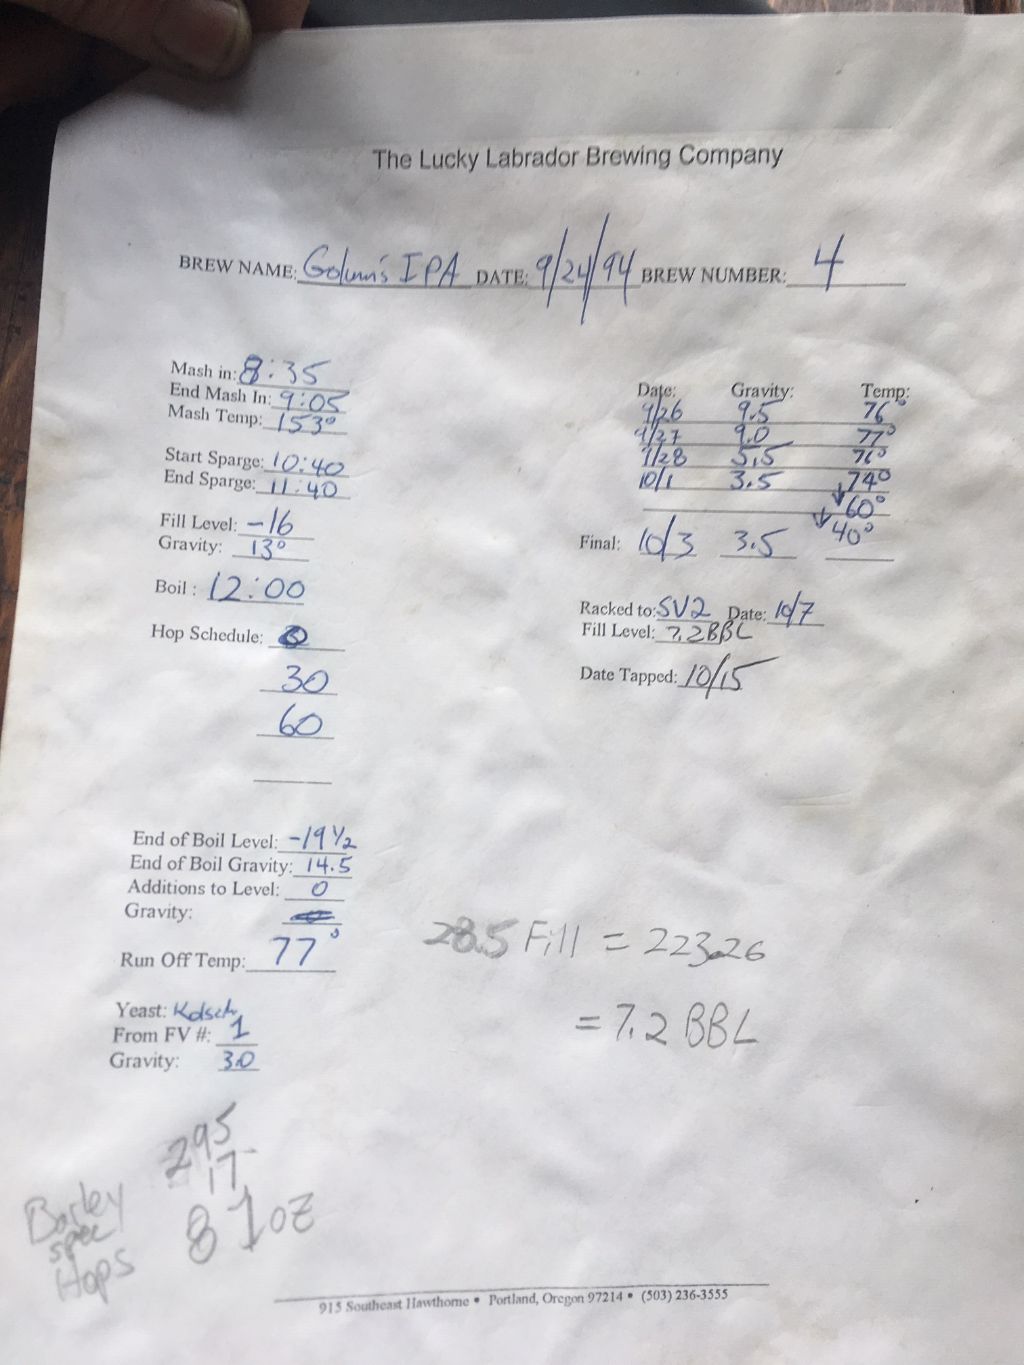 The Lucky Labrador Brewing Company
BREW NAME: Golum's IPA DATE: 9/24/94 BREW NUMBER: 4
Mash in: 8:35
End Mash In: 9:05
Mash Temp: 153°
Start Sparge: 10:40
End Sparge: 11:40
Fill Level: -16
Gravity: 13°
Boil : 12:00
Hop Schedule:
30
60
End of Boil Level: -19 1/2
End of Boil Gravity: 14.5
Additions to Level: 0
Gravity:
Run Off Temp: 77°
Yeast: Kolsch
From FV #: 1
Gravity: 3.0
295
17
Barley
spec
Hops
81oz
Date: Gravity: Temp:
9/26 9.5 76°
9/27 9.0 77°
9/28 5.5 76°
10/1 3.5 74°
↓ 60°
Final: 10/3 3.5 ↓ 40°
Racked to: SV2 Date: 10/7
Fill Level: 7.2BBL
Date Tapped: 10/15
28.5 Fill = 223.26
= 7.2 BBL
915 Southeast Hawthorne • Portland, Oregon 97214 • (503) 236-3555